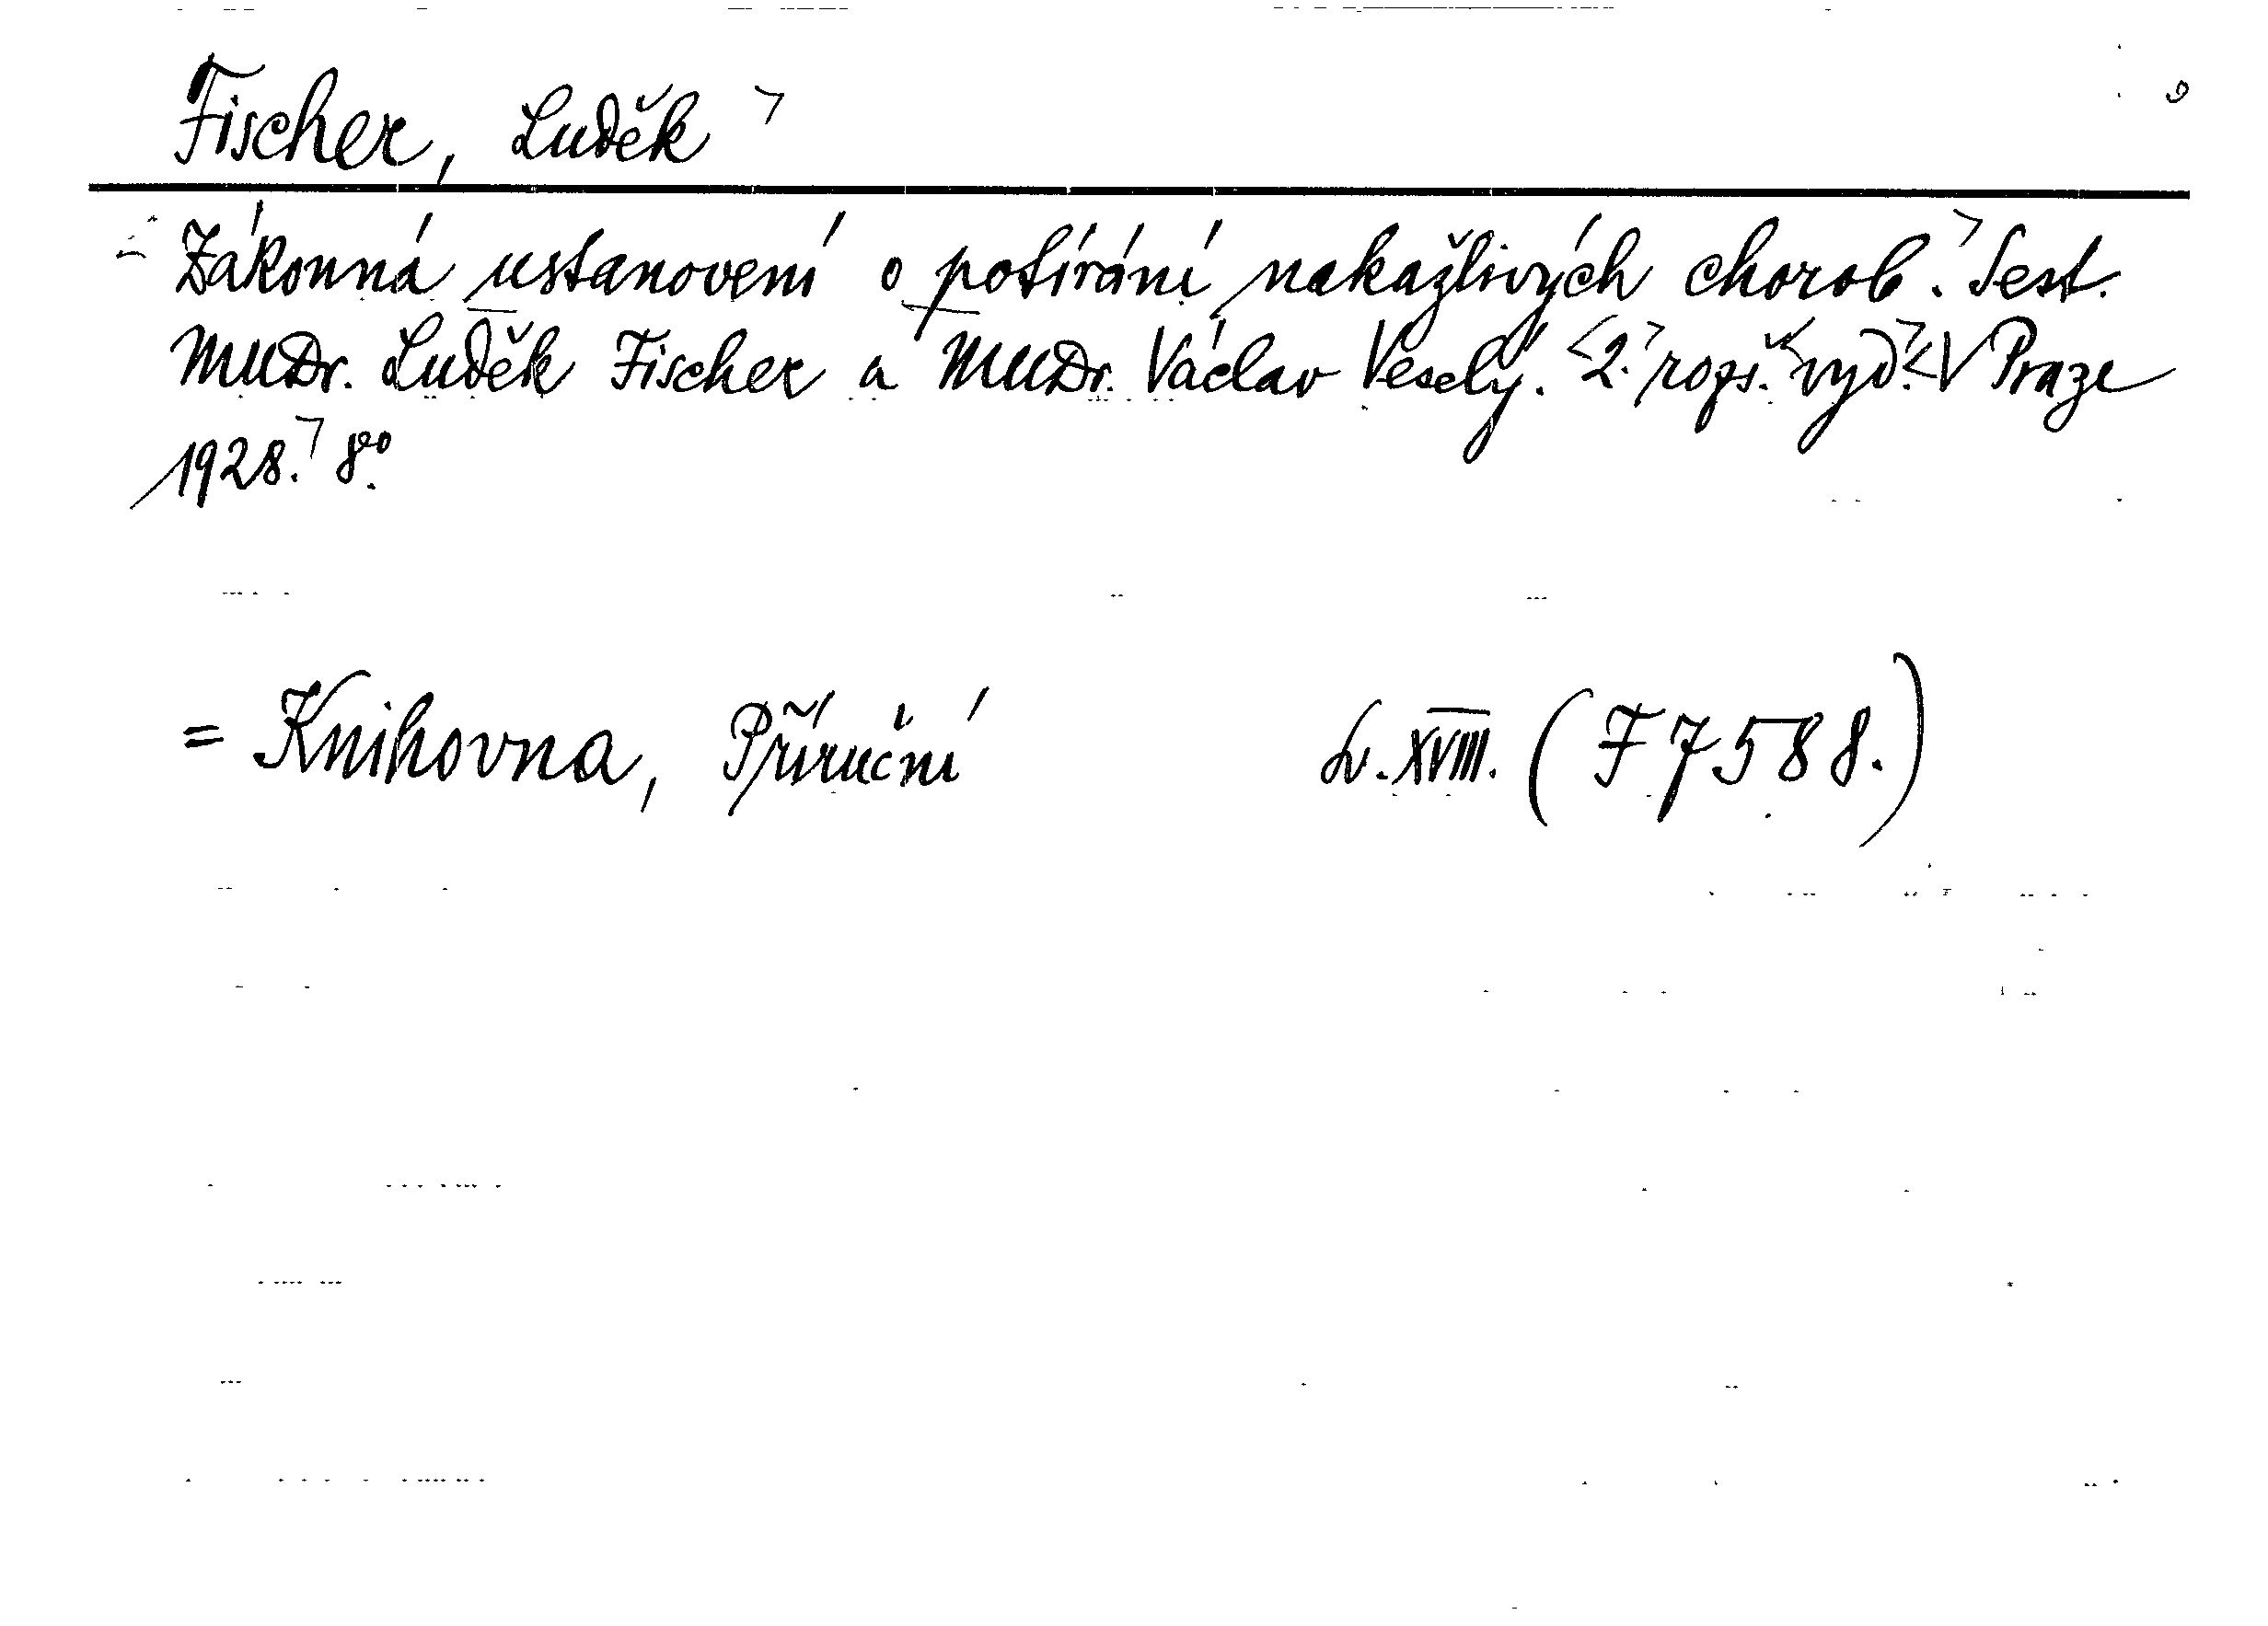 Fischer, Luděk
Zákonná ustanovení o potírání nakažlivých chorob. Sest.
MUDr. Luděk Fischer a MUDr. Václav Veselý. 2. rozš. vyd. V Praze
1928. 8°.
= Knihovna, Příruční sv. XVIII. (F 7588.)